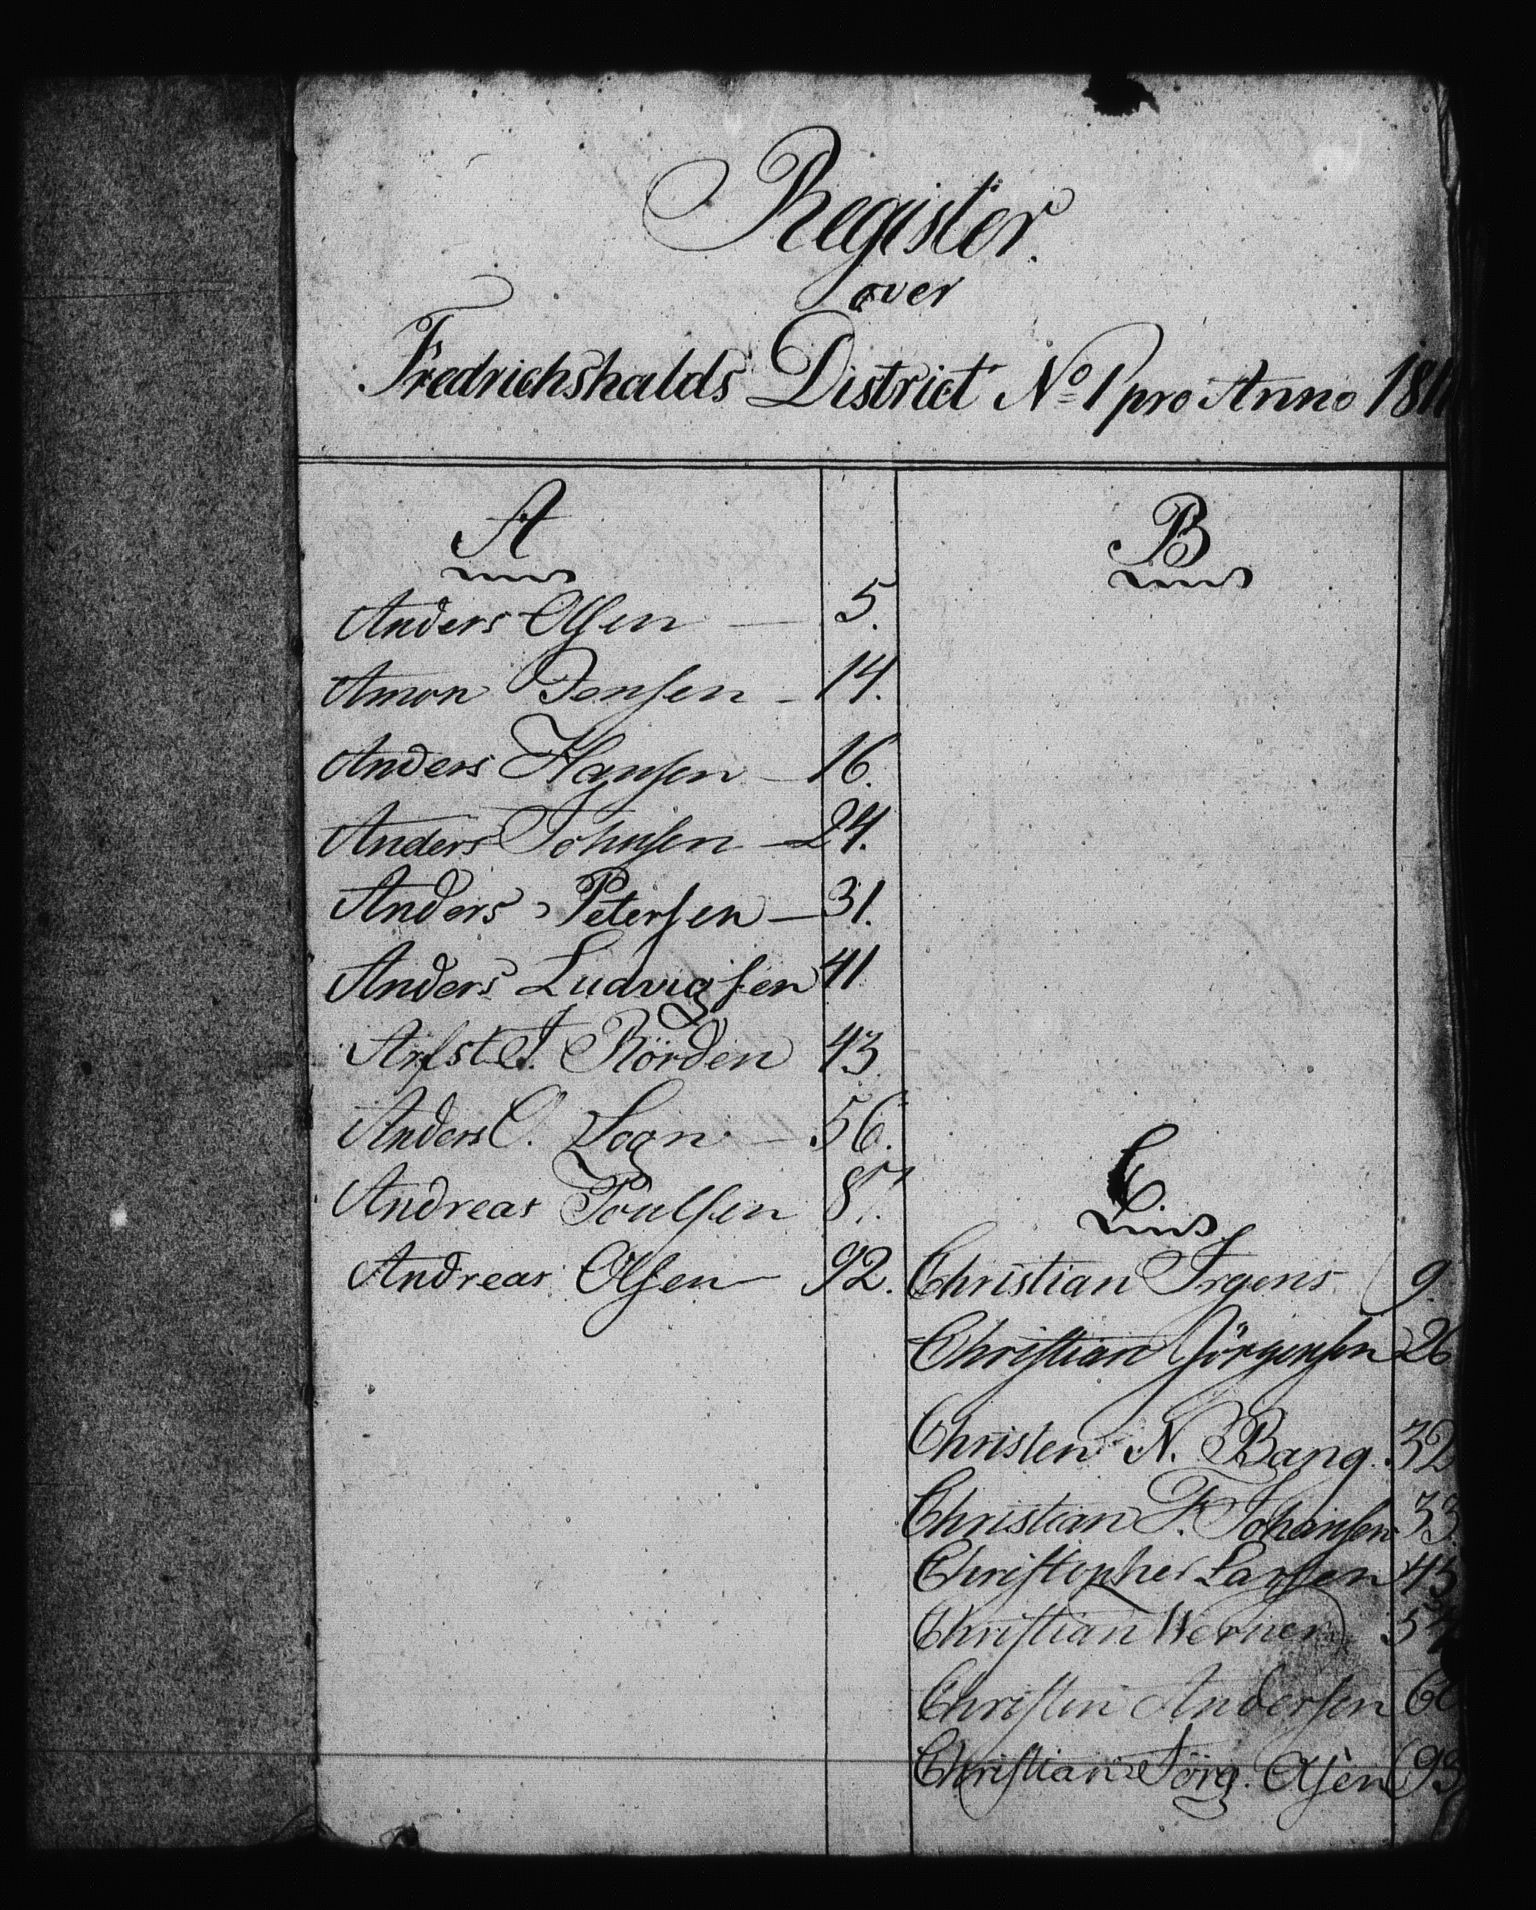 Register
over
Fredrichshalds District No 1 pro Anno 181
A
Anders Olsen — 5.
Amon Jensen - 14.
Anders Hansen - 16.
Anders Johnsen - 24.
Anders Petersen — 31.
Anders Ludvigsen 41
Arfst J. Rörden 43
Anders O. Logn - 56.
Andreas Poulsen 87.
Andreas Olsen - 92.
B
C
Christian Irgens 9.
Christian Jörgensen 26
Christen N. Bang. 32
Christian F. Johansen 33
Christopher Larsen 45
Christian Werner
Christen Andersen
Christian Jörg. Olsen 93